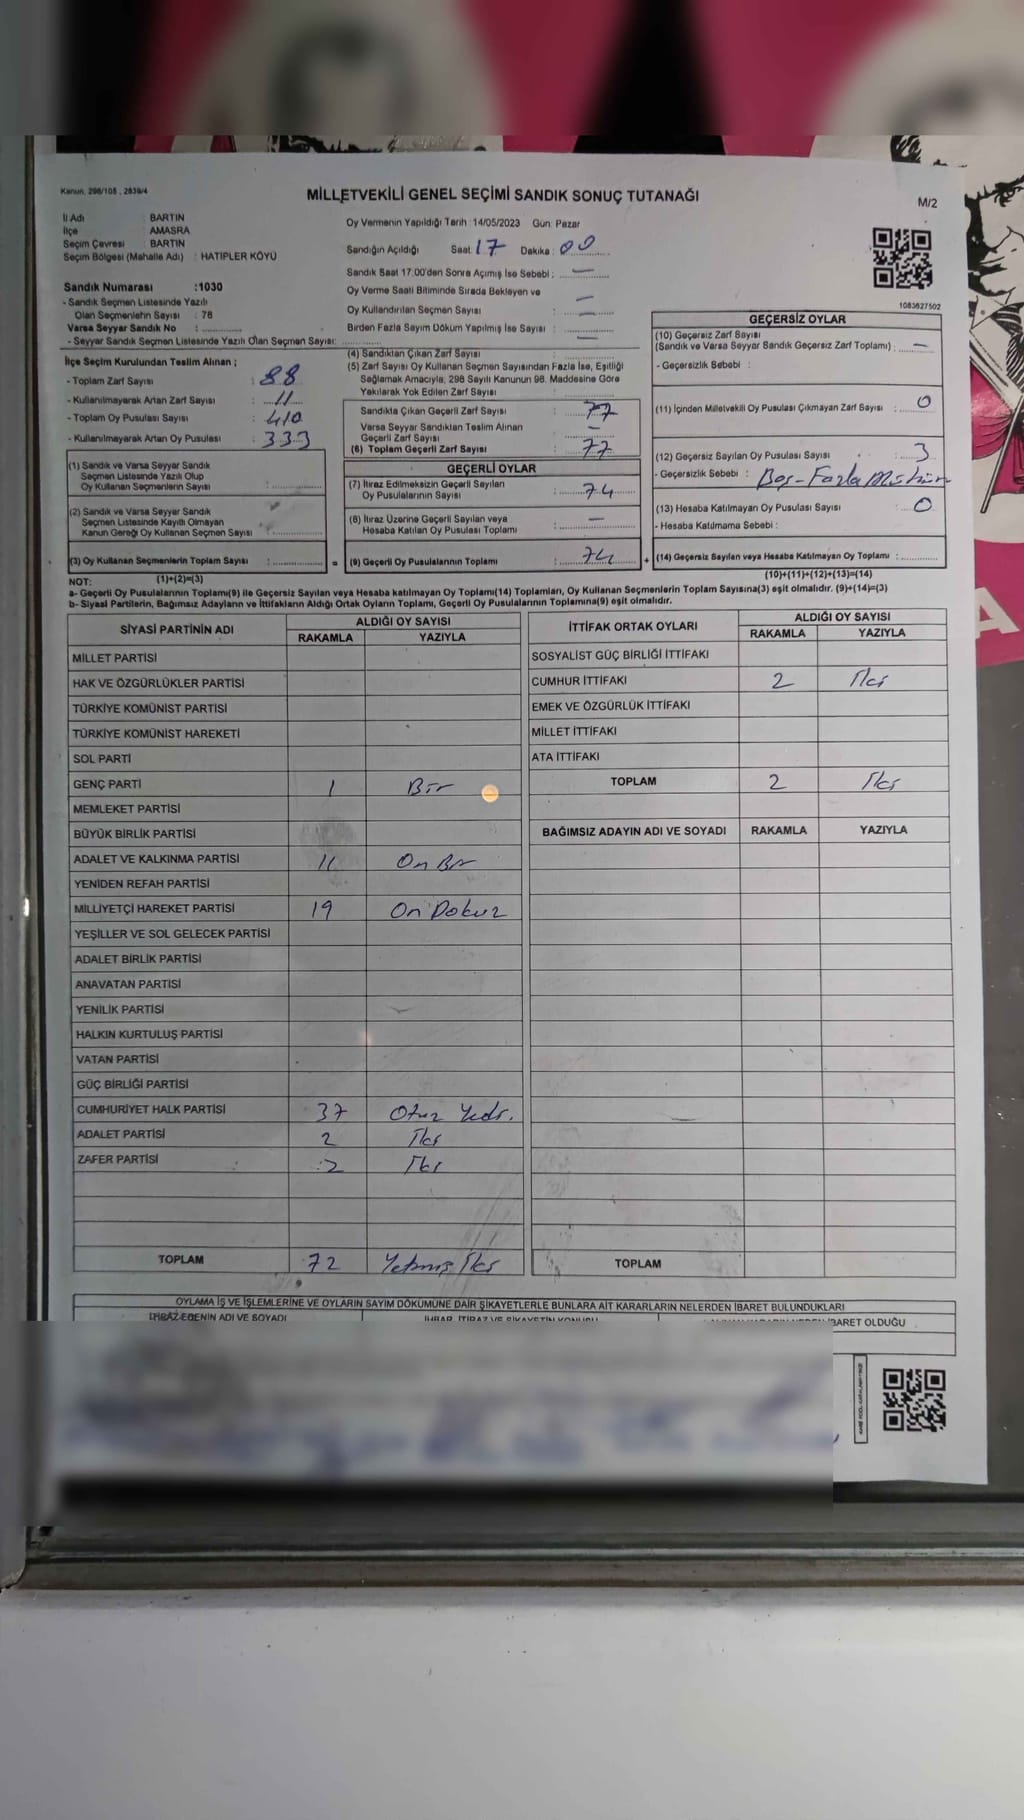 Kanun, 298/105 , 2839/4
MİLLETVEKİLİ GENEL SEÇİMİ SANDIK SONUÇ TUTANAĞI
M/2
İl Adı : BARTIN
İlçe : AMASRA
Seçim Çevresi : BARTIN
Seçim Bölgesi (Mahalle Adı) : HATİPLER KÖYÜ
Sandık Numarası :1030
- Sandık Seçmen Listesinde Yazılı
Olan Seçmenlerin Sayısı : 78
Varsa Seyyar Sandık No :
- Seyyar Sandık Seçmen Listesinde Yazılı Olan Seçmen Sayısı:
Oy Vermenin Yapıldığı Tarih :14/05/2023 Gün: Pazar
Sandığın Açıldığı Saat: 17 Dakika: 00
Sandık Saat 17.00'den Sonra Açılmış İse Sebebi : —
Oy Verme Saati Bitiminde Sırada Bekleyen ve
Oy Kullandırılan Seçmen Sayısı : —
Birden Fazla Sayım Döküm Yapılmış İse Sayısı : —
1083627502
İlçe Seçim Kurulundan Teslim Alınan ;
- Toplam Zarf Sayısı : 88
- Kullanılmayarak Artan Zarf Sayısı : 11
- Toplam Oy Pusulası Sayısı : 410
- Kullanılmayarak Artan Oy Pusulası : 333
(1) Sandık ve Varsa Seyyar Sandık
Seçmen Listesinde Yazılı Olup
Oy Kullanan Seçmenlerin Sayısı :
(2) Sandık ve Varsa Seyyar Sandık
Seçmen Listesinde Kayıtlı Olmayan
Kanun Gereği Oy Kullanan Seçmen Sayısı :
(3) Oy Kullanan Seçmenlerin Toplam Sayısı :
(4) Sandıktan Çıkan Zarf Sayısı :
(5) Zarf Sayısı Oy Kullanan Seçmen Sayısından Fazla İse, Eşitliği
Sağlamak Amacıyla, 298 Sayılı Kanunun 98. Maddesine Göre
Yakılarak Yok Edilen Zarf Sayısı :
Sandıkta Çıkan Geçerli Zarf Sayısı : 77
Varsa Seyyar Sandıktan Teslim Alınan
Geçerli Zarf Sayısı : —
(6) Toplam Geçerli Zarf Sayısı : 77
GEÇERLİ OYLAR
(7) İtiraz Edilmeksizin Geçerli Sayılan
Oy Pusulalarının Sayısı : 74
(8) İtiraz Üzerine Geçerli Sayılan veya
Hesaba Katılan Oy Pusulası Toplamı : —
= (9) Geçerli Oy Pusulalarının Toplamı : 74 +
GEÇERSİZ OYLAR
(10) Geçersiz Zarf Sayısı
(Sandık ve Varsa Seyyar Sandık Geçersiz Zarf Toplamı) : —
- Geçersizlik Sebebi :
(11) İçinden Milletvekili Oy Pusulası Çıkmayan Zarf Sayısı : 0
(12) Geçersiz Sayılan Oy Pusulası Sayısı : 3
- Geçersizlik Sebebi : Boş-Fazla Mühür
(13) Hesaba Katılmayan Oy Pusulası Sayısı : 0
- Hesaba Katılmama Sebebi :
(14) Geçersiz Sayılan veya Hesaba Katılmayan Oy Toplamı :
NOT: (1)+(2)=(3) (10)+(11)+(12)+(13)=(14)
a- Geçerli Oy Pusulalarının Toplamı(9) ile Geçersiz Sayılan veya Hesaba katılmayan Oy Toplamı(14) Toplamları, Oy Kullanan Seçmenlerin Toplam Sayısına(3) eşit olmalıdır. (9)+(14)=(3)
b- Siyasi Partilerin, Bağımsız Adayların ve İttifakların Aldığı Ortak Oyların Toplamı, Geçerli Oy Pusulalarının Toplamına(9) eşit olmalıdır.
SİYASİ PARTİNİN ADI ALDIĞI OY SAYISI
RAKAMLA YAZIYLA
MİLLET PARTİSİ
HAK VE ÖZGÜRLÜKLER PARTİSİ
TÜRKİYE KOMÜNİST PARTİSİ
TÜRKİYE KOMÜNİST HAREKETİ
SOL PARTİ
GENÇ PARTİ 1 Bir
MEMLEKET PARTİSİ
BÜYÜK BİRLİK PARTİSİ
ADALET VE KALKINMA PARTİSİ 11 On Bir
YENİDEN REFAH PARTİSİ
MİLLİYETÇİ HAREKET PARTİSİ 19 On Dokuz
YEŞİLLER VE SOL GELECEK PARTİSİ
ADALET BİRLİK PARTİSİ
ANAVATAN PARTİSİ
YENİLİK PARTİSİ
HALKIN KURTULUŞ PARTİSİ
VATAN PARTİSİ
GÜÇ BİRLİĞİ PARTİSİ
CUMHURİYET HALK PARTİSİ 37 Otuz Yedi.
ADALET PARTİSİ 2 İki
ZAFER PARTİSİ 2 İki
TOPLAM 72 Yetmiş İki
İTTİFAK ORTAK OYLARI ALDIĞI OY SAYISI
RAKAMLA YAZIYLA
SOSYALİST GÜÇ BİRLİĞİ İTTİFAKI
CUMHUR İTTİFAKI 2 İki
EMEK VE ÖZGÜRLÜK İTTİFAKI
MİLLET İTTİFAKI
ATA İTTİFAKI
TOPLAM 2 İki
BAĞIMSIZ ADAYIN ADI VE SOYADI RAKAMLA YAZIYLA
TOPLAM
OYLAMA İŞ VE İŞLEMLERİNE VE OYLARIN SAYIM DÖKÜMÜNE DAİR ŞİKAYETLERLE BUNLARA AİT KARARLARIN NELERDEN İBARET BULUNDUKLARI
İTİRAZ EDENİN ADI VE SOYADI İHBAR, İTİRAZ VE ŞİKAYETİN KONUSU İBARET OLDUĞU